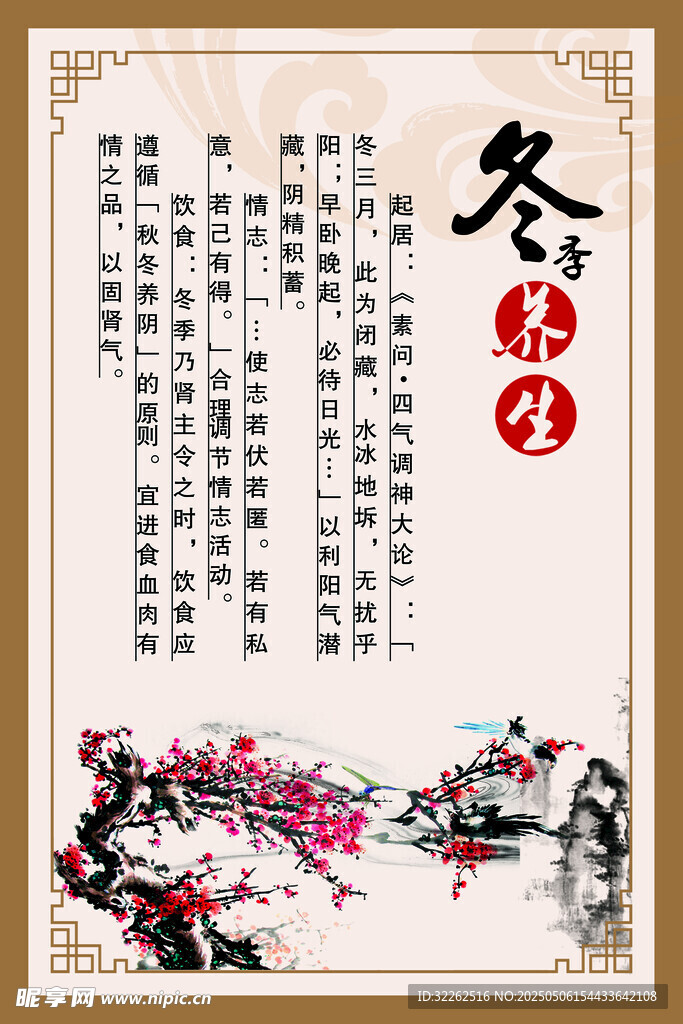 冬季
养生
起居：《素问·四气调神大论》：「
冬三月，此为闭藏，水冰地坼，无扰乎
阳；早卧晚起，必待日光…」以利阳气潜
藏，阴精积蓄。
情志：「…使志若伏若匿。若有私
意，若己有得。」合理调节情志活动。
饮食：冬季乃肾主令之时，饮食应
遵循「秋冬养阴」的原则。宜进食血肉有
情之品，以固肾气。
昵享网 www.nipic.cn
ID:32262516 NO:20250506154433642108